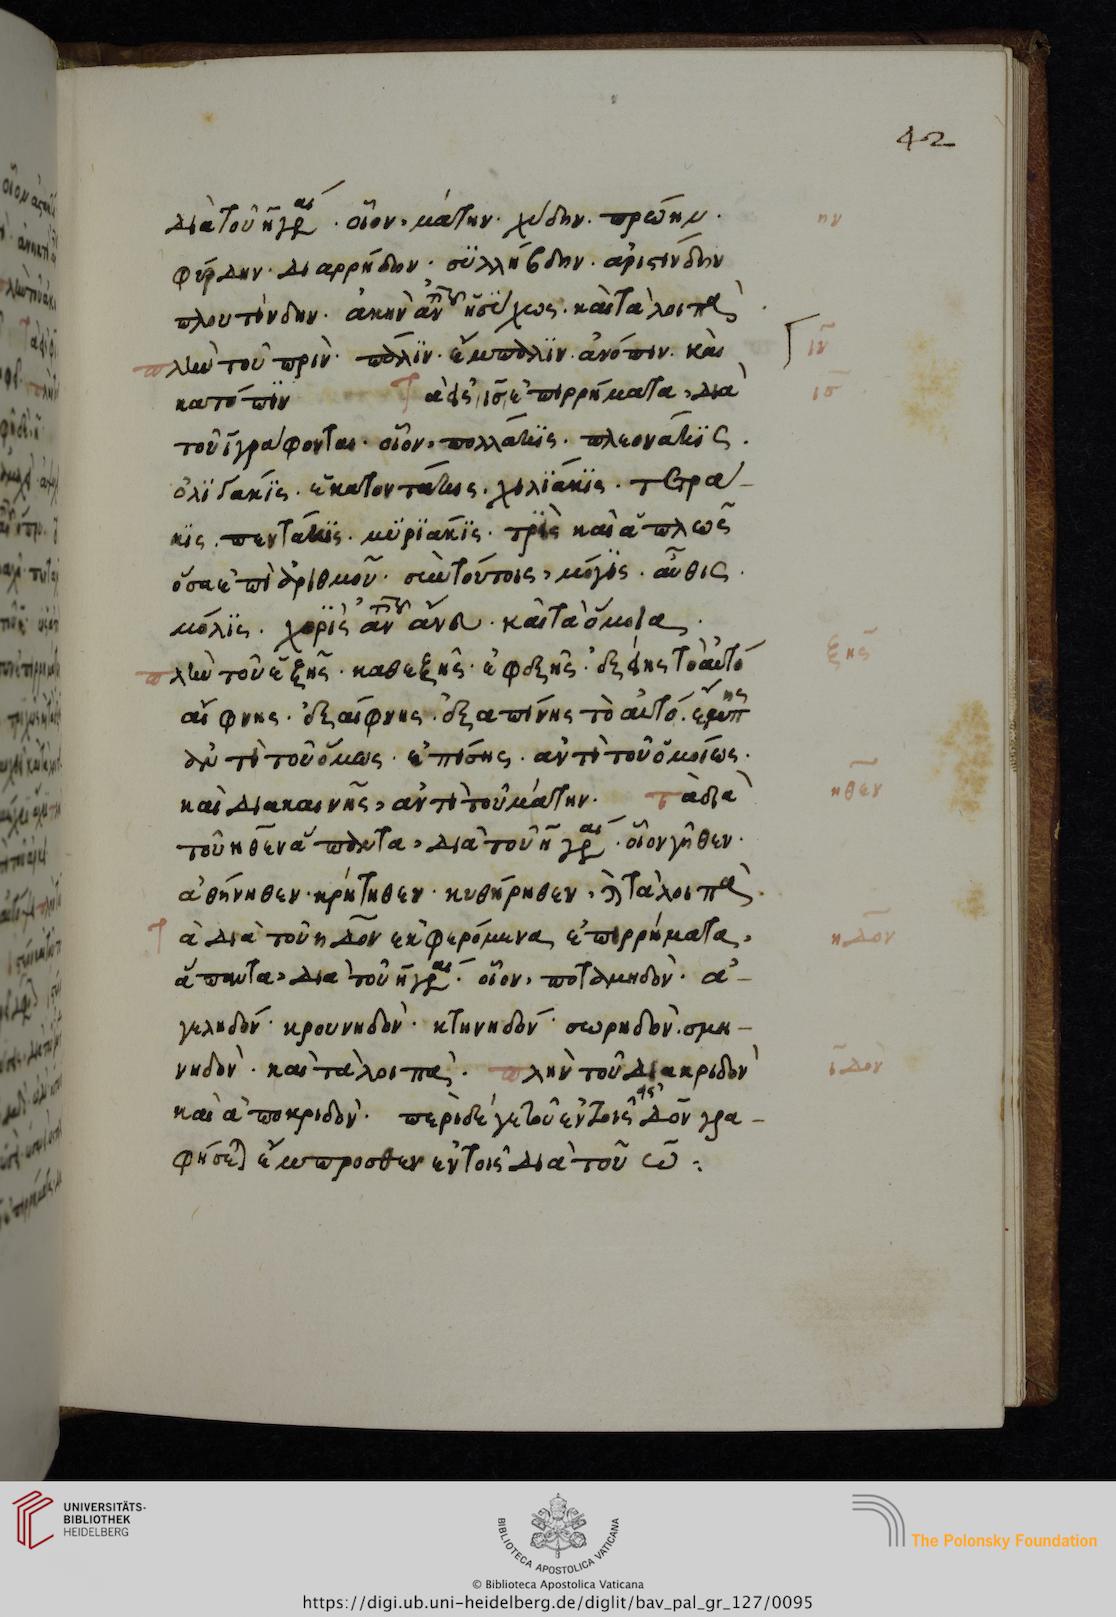 42
διὰ τοῦ η γρ αι · οἷον, μάτην · χύδην · πρώην ·
ην
φύρδην · διαρρήδην · συλλήβδην · ἀριστίνδην
πλουτίνδην · ἀκὴν ἀν ἡσύχως · καὶ τὰ λοιπὰ
πλὴν τοῦ πρὶν · πάλιν · ἔμπαλιν · ἀνόπιν · καὶ
ιν
κατόπιν τὰ εἰς ις ἐπιρρήματα, διὰ
ις
τοῦ ι γράφονται · οἷον, πολλάκις · πλεονάκις ·
ὀλιγάκις · ἑκατοντάκις · χιλιάκις · τετρα-
κις · πεντάκις · μυριάκις · τρὶς καὶ ἁπλῶς
ὅσα ἐπὶ ἀριθμοῦ · σὺν τούτοις, μόγις · αὖθις ·
μόλις · χωρὶς ἄνευ · καὶ τὰ ὅμοια ·
πλὴν τοῦ ἑξῆς · καθεξῆς · ἐφεξῆς · τὸ αὐτό
ξης
αἴφνης · ἐξαίφνης · ἐξαπίνης τὸ αὐτό ·
ἀντὶ τοῦ ὅμως · ἐπίσης · ἀντὶ τοῦ ὁμοίως ·
καὶ διακαινῆς, ἀντὶ τοῦ μάτην · τὰ διὰ
ηθεν
τοῦ ηθεν ἅπαντα, διὰ τοῦ η γρ αι · οἷον γῆθεν ·
ἀθήνηθεν · κρήτηθεν · κυθήρηθεν, τὰ λοιπὰ ·
τὰ διὰ τοῦ ηδον ἐκφερόμενα ἐπιρρήματα,
ηδον
ἅπαντα, διὰ τοῦ η γρ αι · οἷον, ποταμηδὸν · ἀ-
γεληδόν · κρουνηδὸν · κτηνηδόν · σωρηδὸν · σμη-
νηδὸν · καὶ τὰ λοιπὰ · πλὴν τοῦ διακριδὸν
ιδον
καὶ ἀποκριδὸν · περὶ δέ γε τοῦ ἐντὸς γρα-
φήσεται ἔμπροσθεν ἐν τοῖς διὰ τοῦ ω :
UNIVERSITÄTS-
BIBLIOTHEK
HEIDELBERG
BIBLIOTECA APOSTOLICA VATICANA
The Polonsky Foundation
© Biblioteca Apostolica Vaticana
https://digi.ub.uni-heidelberg.de/diglit/bav_pal_gr_127/0095